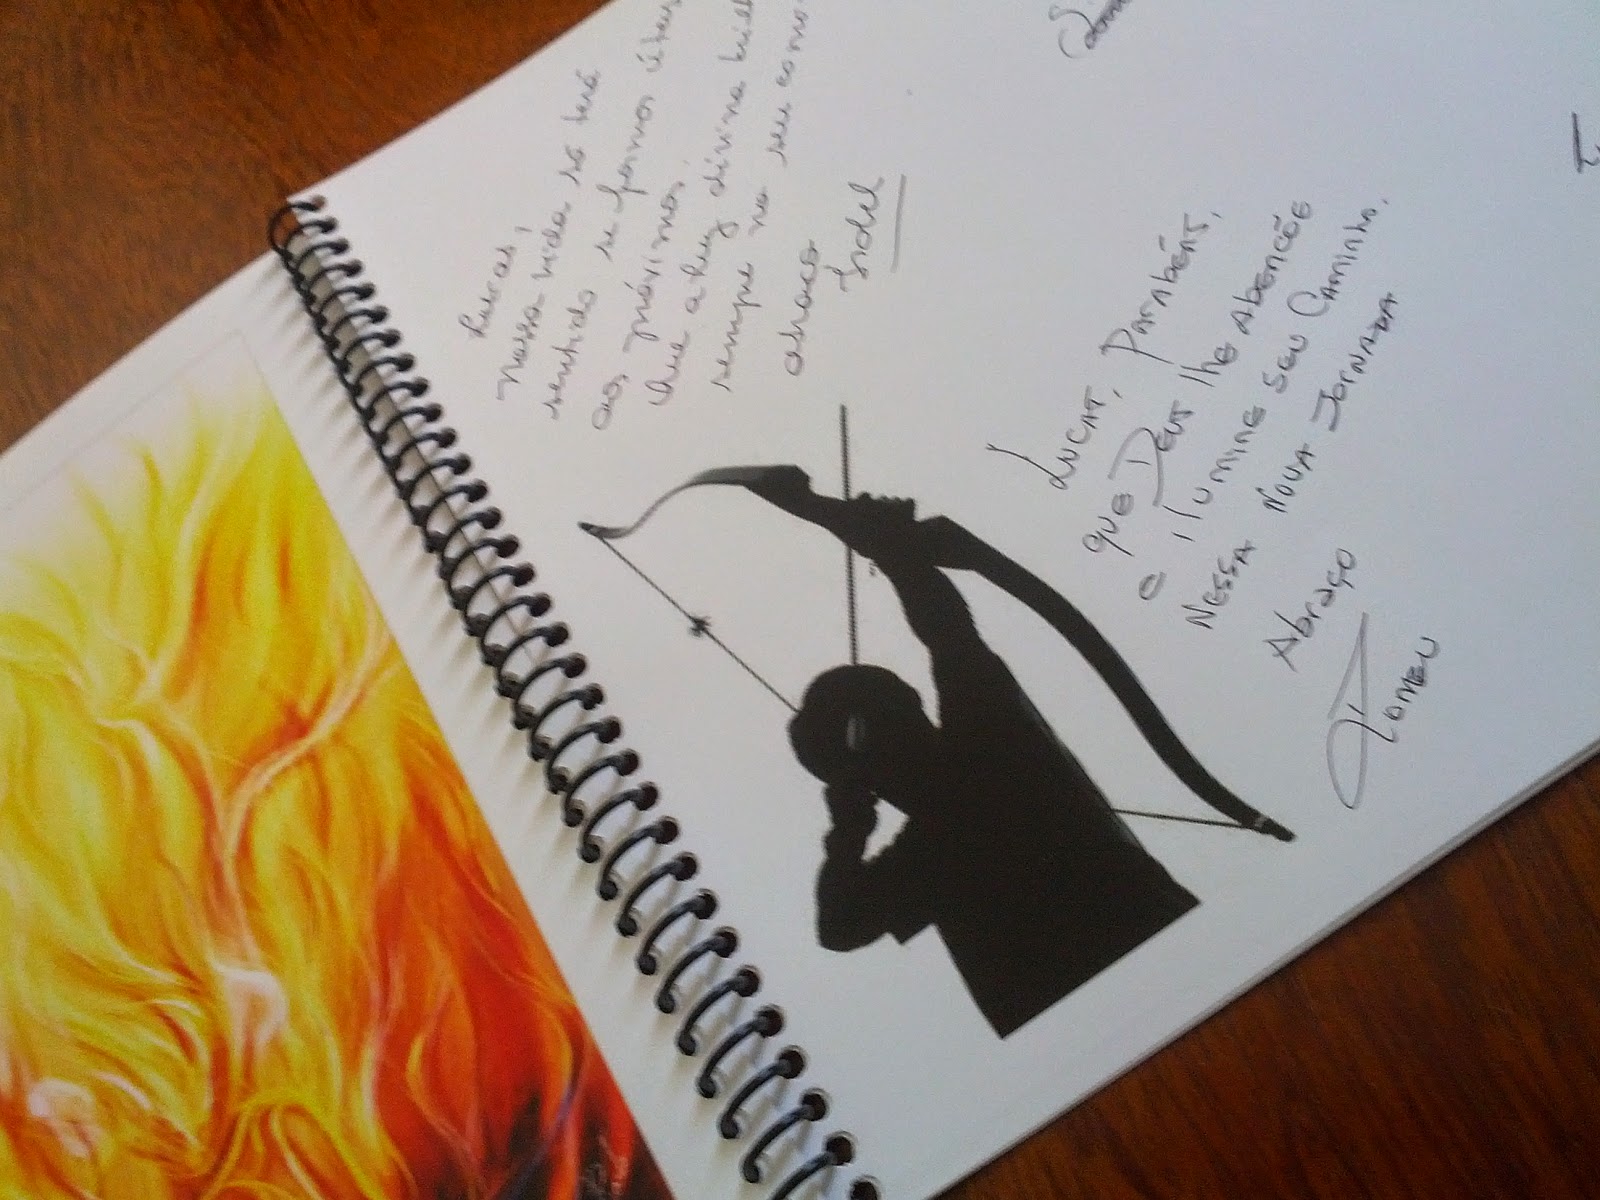 Lucas,
nossa vida só terá
sentido se formos úteis
ao próximo.
Que a luz divina
sempre no seu
abraço
Lucas, Parabéns,
que Deus lhe Abençõe
e ilumine seu Caminho.
Nessa Nova Jornada
Abraço
Romeu